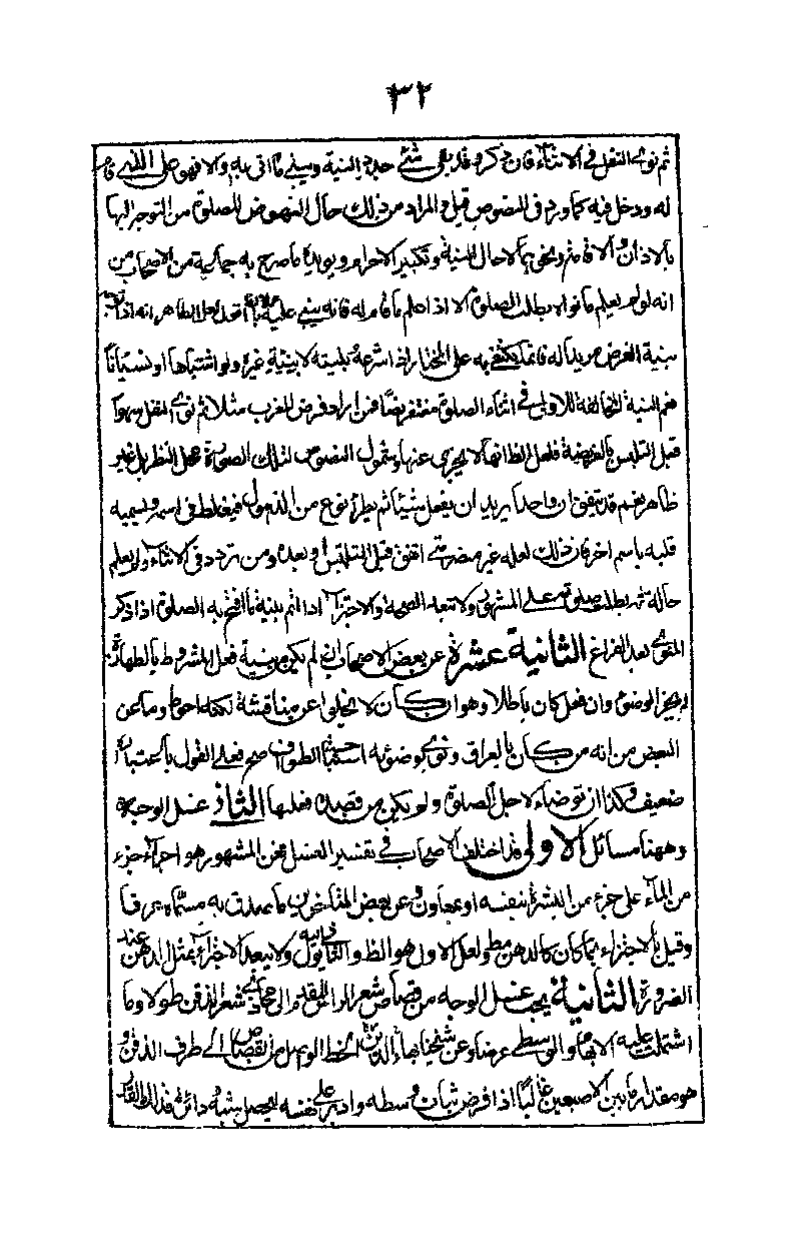 ٣٢
ثم نوى النفل في الاثناء فان ذكر وقد بقى شئ جدد النية وسنى ما اتى به والا فهو على الذي قام
له ودخل فيه كما ورد في النصوص قيل والمراد من ذلك حال النهوض للصلوة من التوجه اليها
بالاذان والاقامة ونحوهما لا حال النية وتكبير الاحرام ويؤيده ما صرح به جماعة من الاصحاب من
انه لو لم يعلم ما نواه بطلت الصلوة الا اذا علم ما قام له فانه يبنى عليه اقول لعل الظاهر انه اذا
بنية الفرض مريدا له فانما يكتفى به على المختار اذا شرع بنيته لا بنية غيره ولو اشتباها او نسيانا
نعم النية المخالفة للاولى في اثناء الصلوة مغتفر ايضا فمن اراد فرض المغرب مثلا ثم نوى النفل سهوا
قبل التلبس بالفريضة فلعل الظ انها لا يجزى عنها وشمول النصوص لتلك الصورة محل النظر بل غير
ظاهر نعم قد يتفق ان واحدا يريد ان يفعل شيئا ثم يطرء نوع من الذهول فيغلط في اسمه ويسميه
قلبه باسم اخر فان ذلك لعله غير مضر متى اتفق قبل التلبس او بعده ومن تردد في الاثناء ولم يعلم
حاله بطلت صلوته على المشهور ولا تبعد الصحة والاجتزاء اذا اتم بنية ما افتتح به الصلوة اذا ذكر
المنوى بعد الفراغ الثانية عشرة عن بعض الاصحاب ان لم يكن من نية فعل المشروط بالطهارة
لم يجز الوضوء وان فعل كان باطلا وهو ان كان لا يخلوا عن مناقشة لكنه احوط وما عن
البعض من انه من كان بالعراق ونوى بوضوئه استباحة الطواف صح فعلى القول باعتبار
ضعيف وكذا ان توضاء لاجل الصلوة ولو يكن من قصده فعلها الثانى غسل الوجه
وههنا مسائل الاولى قد اختلف الاصحاب في تفسير الغسل فعن المشهور هو اجراء جزء
من الماء على جزء من البشرة بنفسه او بمعاون وعن بعض المتاخرين ما صدقت به مسماه عرفا
وقيل بالاجتزاء بما كان كالدهن مط ولعل الاول هو الظ والثانى قوى ولا يبعد الاجتزاء بمثل الدهن عند
الضرورة الثانية يجب غسل الوجه من قصاص شعر الراس المقدم الى محاذى شعر الذقن طولا وما
اشتملت عليه الابهام والوسطى عرضا وعن شيخنا بهاء الدين الخط الواصل من القصاص الى طرف الذقن
هو مقدار ما بين الاصبعين غالبا اذا فرض ثبات وسطه وادير على نفسه ليحصل شبه دائرة فذلك القدر